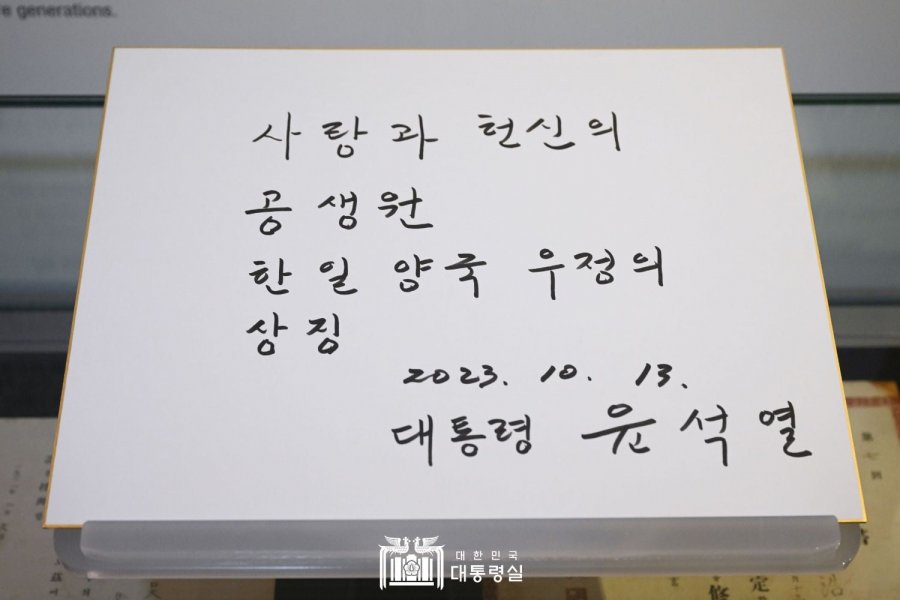 e generations.
사랑과 헌신의
공생원
한일 양국 우정의
상징
2023. 10. 13.
대통령 윤석열
대한민국
대통령실